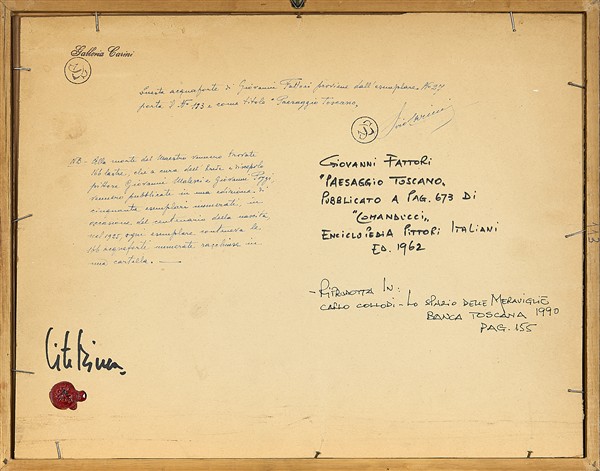 Galleria Carini
Questa acquaforte di Giovanni Fattori proviene dall'esemplare N. 27
porta il N. 173 e come titolo "Paesaggio Toscano.
NB - Alla morte del Maestro vennero trovate
166 lastre, che a cura dell'erede e discepolo
pittore Giovanni Malesci e Giovanni Poggi
vennero pubblicate in una edizione di
cinquanta esemplari numerati, in
occasione del centenario della nascita,
nel 1925, ogni esemplare conteneva le
166 acqueforti numerate racchiuse in
una cartella.
GIOVANNI FATTORI
"PAESAGGIO TOSCANO"
PUBBLICATO A PAG. 673 DI
"COMANDUCCI"
ENCICLOPEDIA PITTORI ITALIANI
ED. 1962
- RIPRODOTTA IN:
CARLO COLLODI - LO SPAZIO DELLE MERAVIGLIE
BANCA TOSCANA 1990
PAG. 155